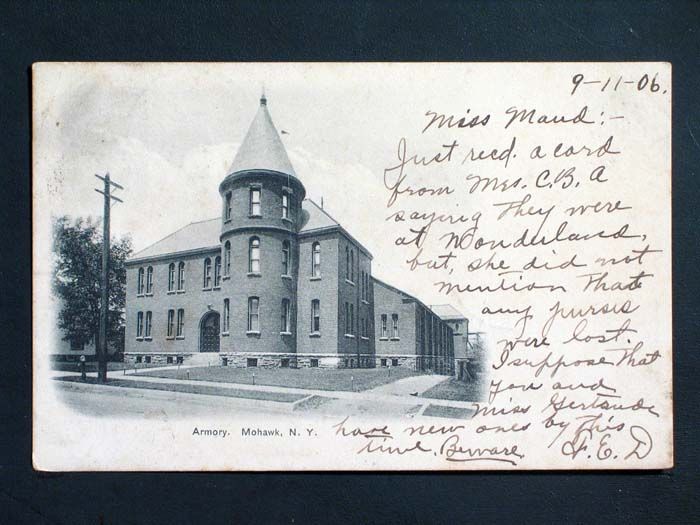 9-11-06.
Miss Maud:-
Just recd. a card
from Mrs. C.B. A
saying they were
at Wonderland,
but, she did not
mention that
any purses
were lost.
I suppose that
you and
Miss Gertrude
have new ones by this
time. Beware.
F. E. D
Armory. Mohawk, N. Y.